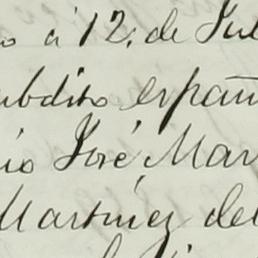 á 12, de Jul
ubdito españ
José Mar
Martinez del